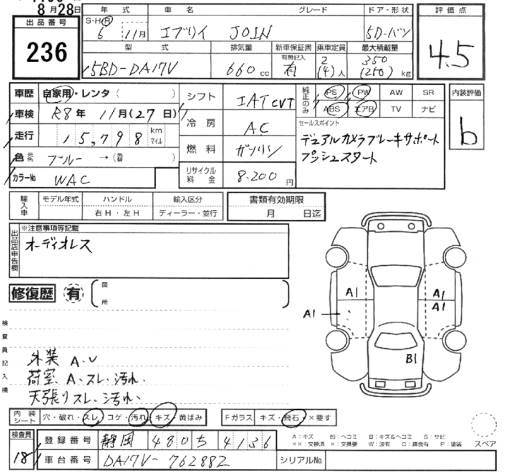 8月28日
出品番号
236
年式 車名 グレード ドア・形状
S・H・R 6年 11月 エブリイ JOIN 5D-バン
型式 排気量 新車保証書 乗車定員 最大積載量
5BD-DA17V 660cc 有無記入 有 2(4)人 350(250)kg
評価点
4.5
内装評価
b
車歴 自家用・レンタ( )
車検 R8年 11月(27日)
走行 15,798 km マイル
色 ブルー→( )
カラーNo WAC
シフト IAT CVT
冷房 AC
燃料 ガソリン
リサイクル料金 8,200円
純正のみ
PS PW AW SR
ABS エアB TV ナビ
セールスポイント
デュアルカメラブレーキサポート
プッシュスタート
輸入車 モデル年式 ハンドル 輸入区分
右H・左H ディーラー・並行
書類有効期限
月 日迄
出品店申告欄
※注意事項等記載
オーディオレス
修復歴 有
箇所
検査員記入欄
外装 A.U
荷室 A.スレ.汚れ.
天張りスレ.汚れ.
A1
A1
A1
B1
内装シート 穴・破れ・スレ コゲ・汚れ・キズ・黄ばみ
Fガラス キズ・飛石・X・要す
A:キズ B:ヘコミ W:波 U:ヘコミ
スペア
検査員 18
登録番号 静岡 480 ち 4136
車台番号 DA17V-762882
シリアルNo